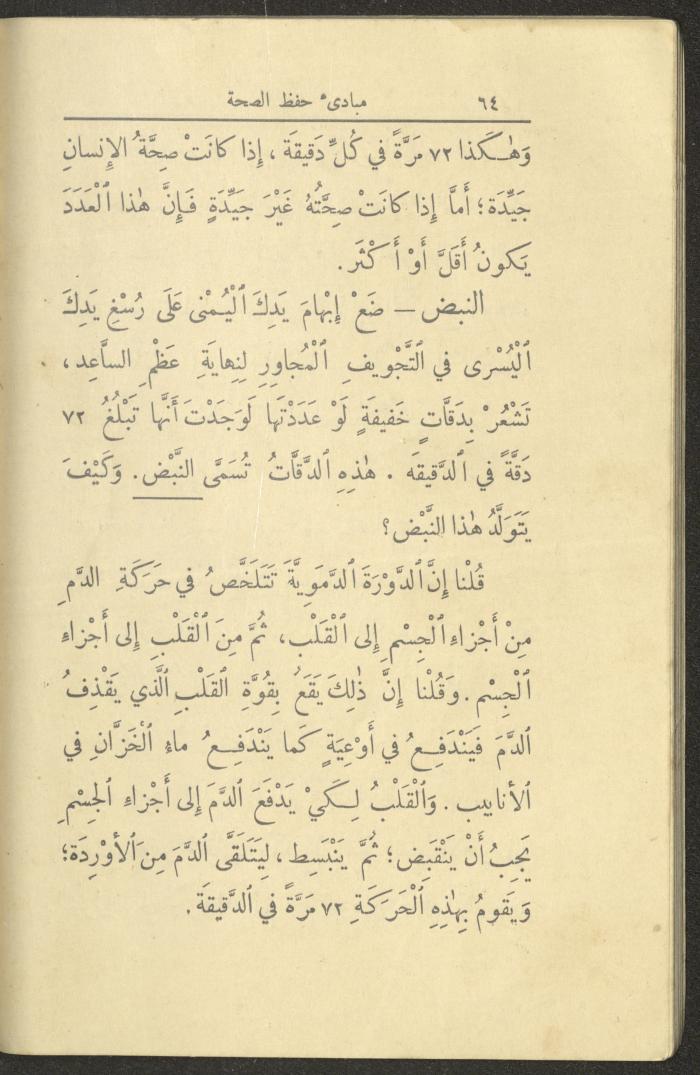 ٦٤ مبادىء حفظ الصحة
وَهٰكَذا ٧٢ مَرَّةً في كُلِّ دَقيقَة ، إِذا كانَتْ صِحَّةُ الإِنسانِ
جَيِّدَة ؛ أَمَّا إِذا كانَتْ صِحَّتُهُ غَيْرَ جَيِّدَةٍ فَإِنَّ هٰذا ٱلْعَدَدَ
يَكونُ أَقَلَّ أَوْ أَكْثَر .
النبض — ضَعْ إِبْهامَ يَدِكَ ٱلْيُمْنى عَلَى رُسْغِ يَدِكَ
ٱلْيُسْرى في ٱلتَّجْويفِ ٱلْمُجاوِرِ لِنِهايَةِ عَظْمِ السَّاعِد ،
تَشْعُرْ بِدَقَّاتٍ خَفيفَةٍ لَوْ عَدَدْتَها لَوَجَدْتَ أَنَّها تَبْلُغُ ٧٢
دَقَّةً في ٱلدَّقيقَه . هٰذِهِ ٱلدَّقَّاتُ تُسَمَّى النَّبْض . وَكَيْفَ
يَتَوَلَّدُ هٰذا النَّبْض ؟
قُلْنا إِنَّ ٱلدَّوْرَةَ ٱلدَّمَوِيَّةَ تَتَلَخَّصُ في حَرَكَةِ الدَّمِ
مِنْ أَجْزاءِ ٱلْجِسْمِ إِلى ٱلْقَلْب ، ثُمَّ مِنَ ٱلْقَلْبِ إِلى أَجْزاءِ
ٱلْجِسْم . وَقُلْنا إِنَّ ذٰلِكَ يَقَعُ بِقُوَّةِ ٱلقَلْبِ ٱلَّذي يَقْذِفُ
ٱلدَّمَ فَيَنْدَفِعُ في أَوْعِيَةٍ كَما يَنْدَفِعُ ماءُ ٱلْخَزَّانِ في
ٱلأنابيب . وَٱلْقَلْبُ لِكَيْ يَدْفَعَ ٱلدَّمَ إِلى أَجْزاءِ ٱلجِسْمِ
يَجِبُ أَنْ يَنْقَبِض ؛ ثُمَّ يَنْبَسِط ، لِيَتَلَقَّى ٱلدَّمَ مِنَ ٱلأَوْرِدَة ؛
وَيَقومُ بِهٰذِهِ ٱلْحَرَكَةِ ٧٢ مَرَّةً في ٱلدَّقيقَة .